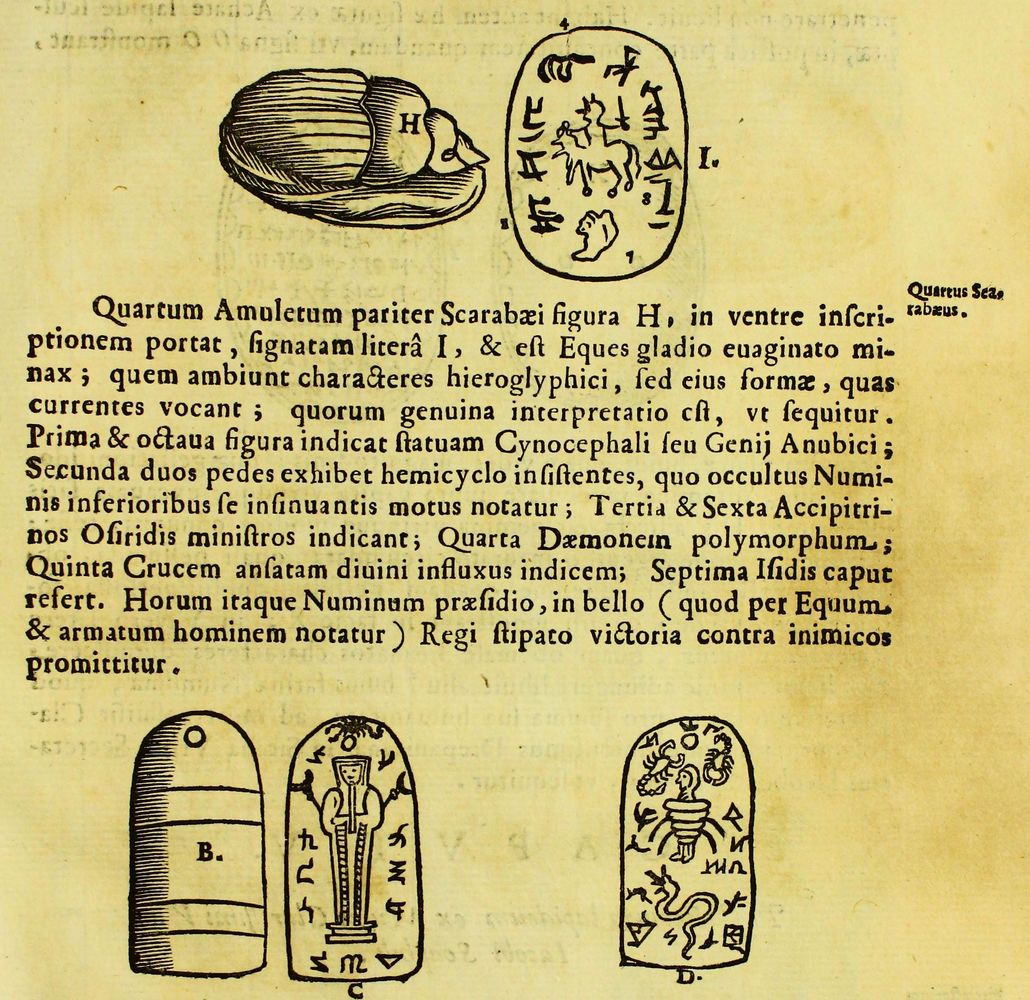 4
H
I.
8
7
Quartus Sca-
rabæus.
Quartum Amuletum pariter Scarabæi figura H, in ventre inſcri-
ptionem portat, ſignatam literâ I, & eſt Eques gladio euaginato mi-
nax; quem ambiunt characteres hieroglyphici, ſed eius formæ, quas
currentes vocant; quorum genuina interpretatio eſt, vt ſequitur.
Prima & octaua figura indicat ſtatuam Cynocephali ſeu Genij Anubici;
Secunda duos pedes exhibet hemicyclo inſiſtentes, quo occultus Numi-
nis inferioribus ſe inſinuantis motus notatur; Tertia & Sexta Accipitri-
nos Oſiridis miniſtros indicant; Quarta Dæmonem polymorphum;
Quinta Crucem anſatam diuini influxus indicem; Septima Iſidis caput
refert. Horum itaque Numinum præſidio, in bello (quod per Equum
& armatum hominem notatur) Regi ſtipato victoria contra inimicos
promittitur.
B.
C
D.